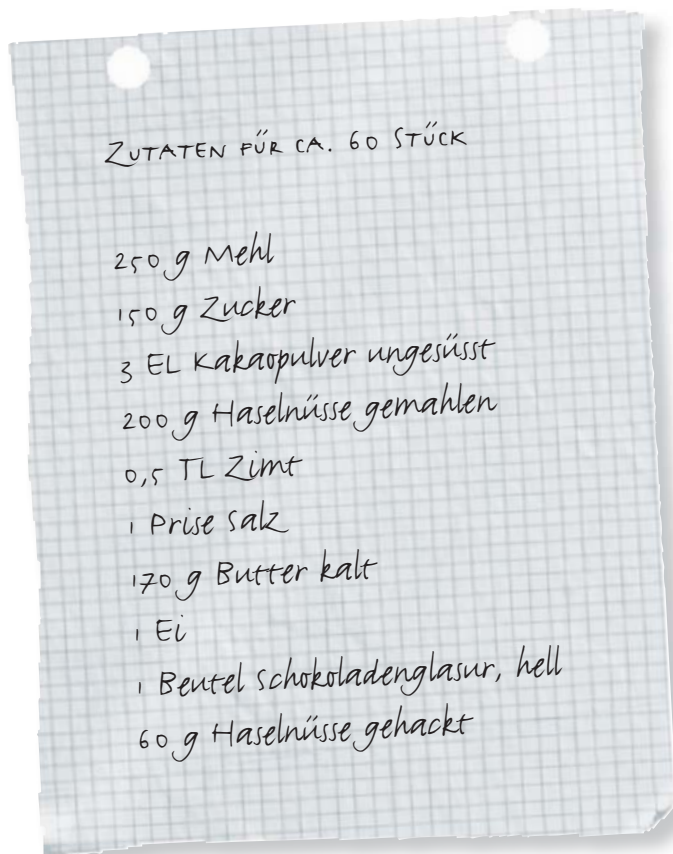 ZUTATEN FÜR CA. 60 STÜCK
250 g Mehl
150 g Zucker
3 EL Kakaopulver ungesüsst
200 g Haselnüsse gemahlen
0,5 TL Zimt
1 Prise Salz
170 g Butter kalt
1 Ei
1 Beutel Schokoladenglasur, hell
60 g Haselnüsse gehackt